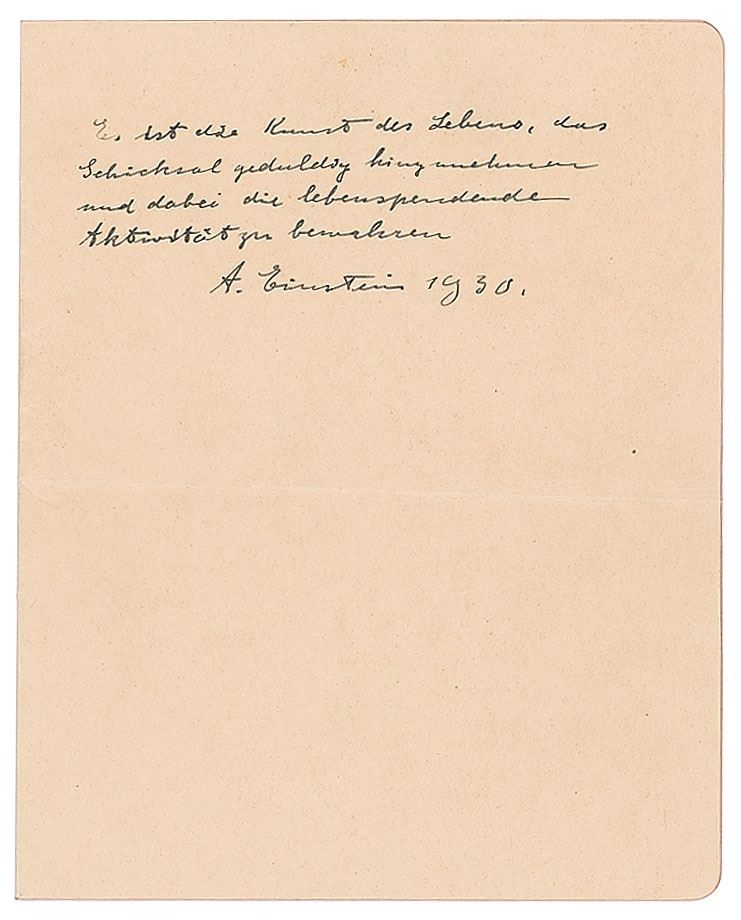 Es ist die Kunst des Lebens, das
Schicksal geduldig hinzunehmen
und dabei die lebenspendende
Aktivität zu bewahren
A. Einstein 1930.